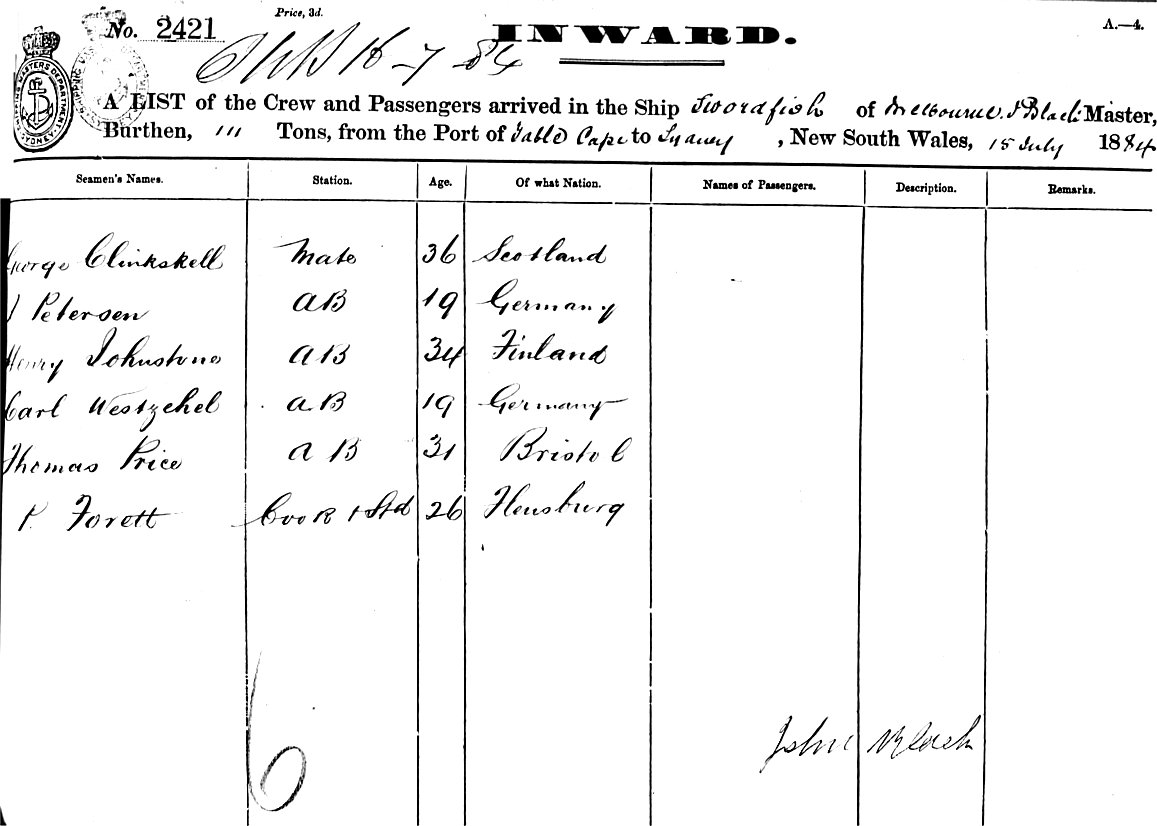 Price, 3d.
No. 2421 INWARD. A.—4.
16-7-84
A LIST of the Crew and Passengers arrived in the Ship Swordfish of Melbourne. J Black Master,
Burthen, 111 Tons, from the Port of Table Cape to Sydney, New South Wales, 15 July 1884
Seamen's Names. Station. Age. Of what Nation. Names of Passengers. Description. Remarks.
George Clinkskell Mate 36 Scotland
J Petersen AB 19 Germany
Henry Johnstone AB 34 Finland
Carl Westzehel a.B 19 Germany
Thomas Price a B 31 Bristol
P. Forett Cook & Std 26 Flensburg
John Black
6